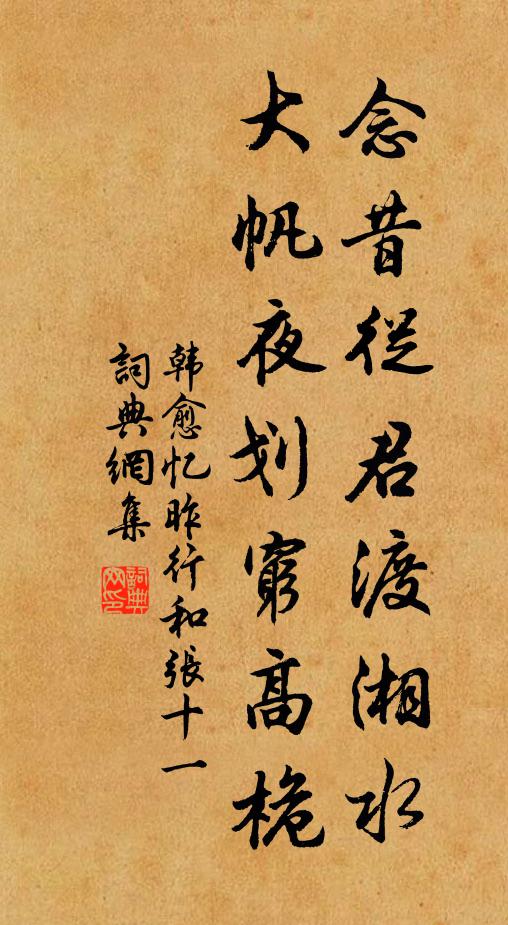 念昔從君渡湘水
大帆夜划窮高桅
韩愈忆昨行和張十一
詞典網集
詞典网印